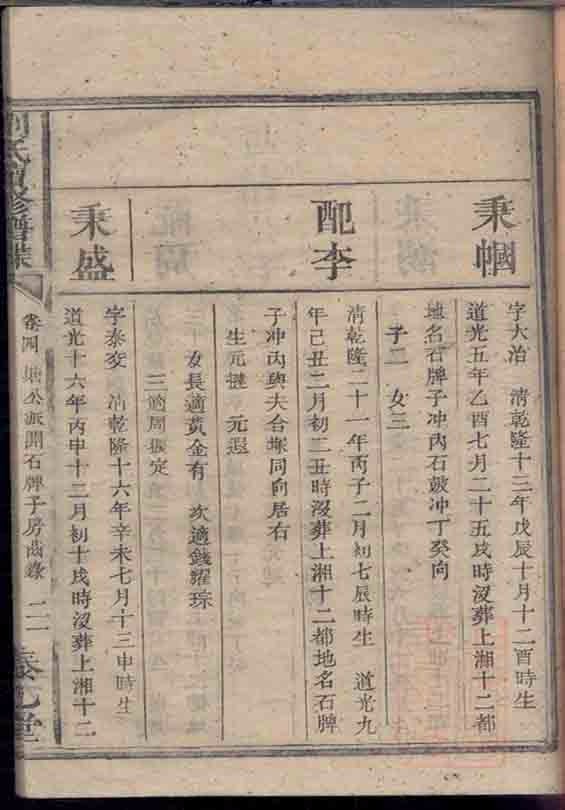 秉幗
字大冶　清乾隆十三年戊辰十月十二酉時生
道光五年乙酉七月二十五戌時沒葬上湘十二都
地名石牌子冲內石鼓冲丁癸向
子二　女三
配李
清乾隆二十一年丙子二月初七辰時生　道光九
年己丑二月初二丑時沒葬上湘十二都地名石牌
子冲內與夫合塚同向居右
生元　元遐
女長適黃金有　次適錢耀珠
三適周振定
秉盛
字泰交　清乾隆十六年辛未七月十三申時生
道光十六年丙申十二月初十戌時沒葬上湘十二
劉氏續修譜牒
卷四　公派開石牌子房齒錄　二
堂